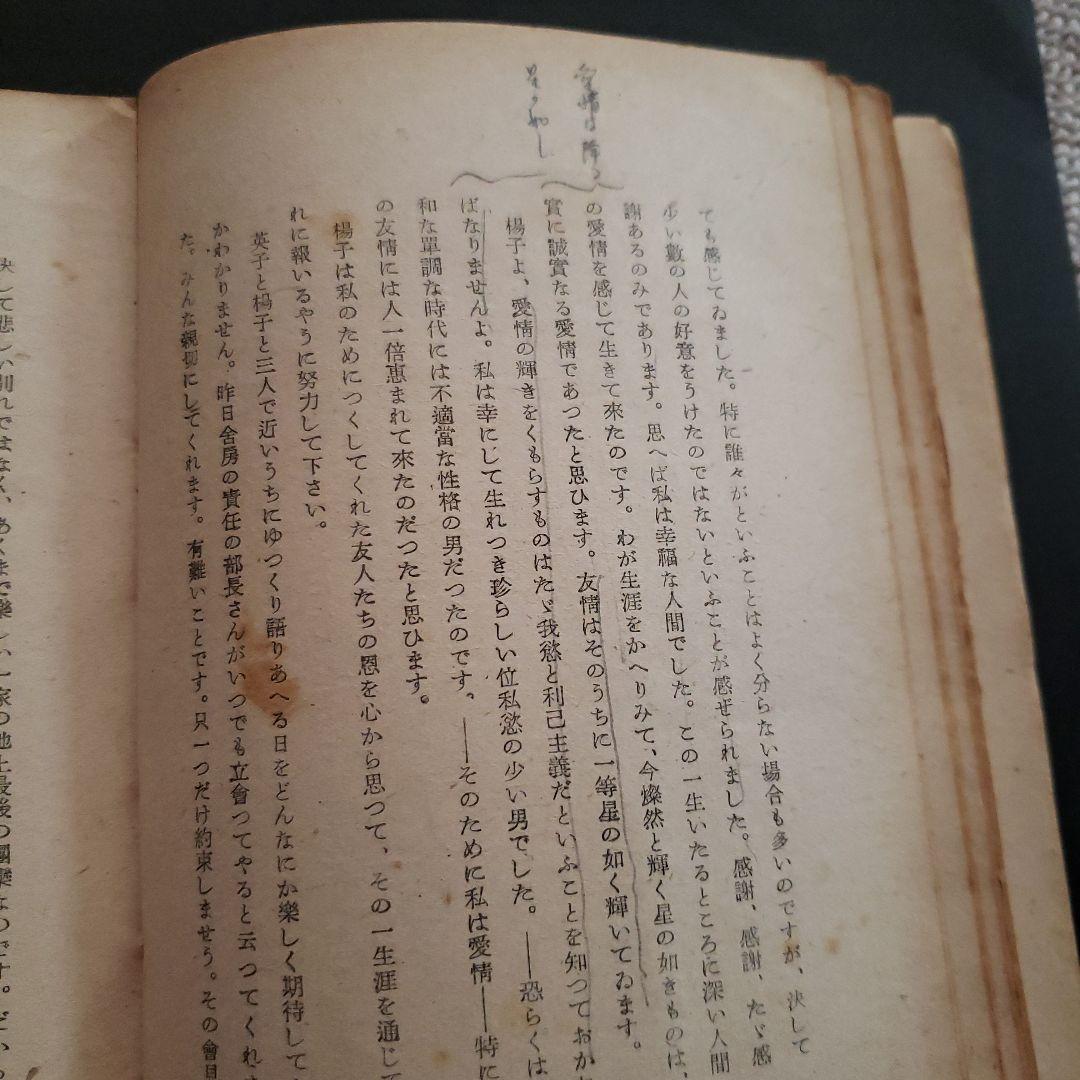 愛情は降る
星の如し
ても感じてゐました。特に誰々がといふことはよく分らない場合も多いのですが、決して
少い數の人の好意をうけたのではないといふことが感ぜられました。感謝、感謝、たゞ感
謝あるのみであります。思へば私は幸福な人間でした。この一生いたるところに深い人間
の愛情を感じて生きて來たのです。わが生涯をかへりみて、今燦然と輝く星の如きものは、
實に誠實なる愛情であつたと思ひます。友情はそのうちに一等星の如く輝いてゐます。
楊子よ、愛情の輝きをくもらすものはたゞ我慾と利己主義だといふことを知つておかね
ばなりませんよ。私は幸にして生れつき珍らしい位私慾の少い男でした。――恐らくは
和な單調な時代には不適當な性格の男だつたのです。――そのために私は愛情――特に
の友情には人一倍惠まれて來たのだつたと思ひます。
楊子は私のためにつくしてくれた友人たちの恩を心から思つて、その一生涯を通じて
れに報いるやうに努力して下さい。
英子と楊子と三人で近いうちにゆつくり語りあへる日をどんなにか樂しく期待して
かわかりません。昨日舍房の責任の部長さんがいつでも立會つてやると云つてくれま
た。みんな親切にしてくれます。有難いことです。只一つだけ約束しませう。その會見
決して悲しい別れではなく、あくまで樂しい一家の地上最後の團欒なのです。